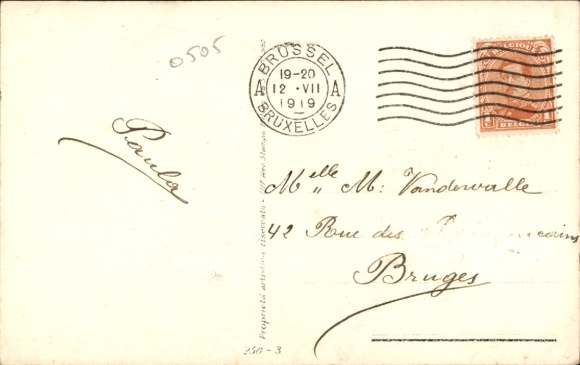 0505
BRUSSEL
19-20
A 12 · VII A
1919
BRUXELLES
BELGIQUE
BELGIË
Paula
Melle M: Vandewalle
42 Rue des
Bruges
Proprietà artistica riservata
258-3